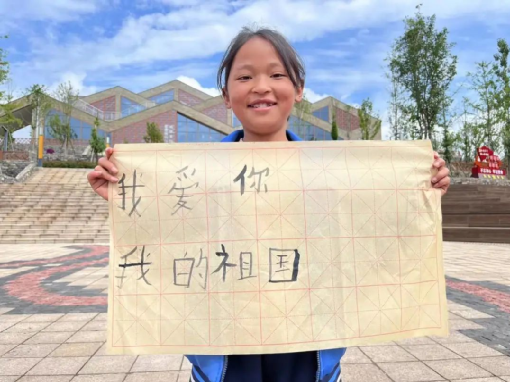 我爱你
我的祖国